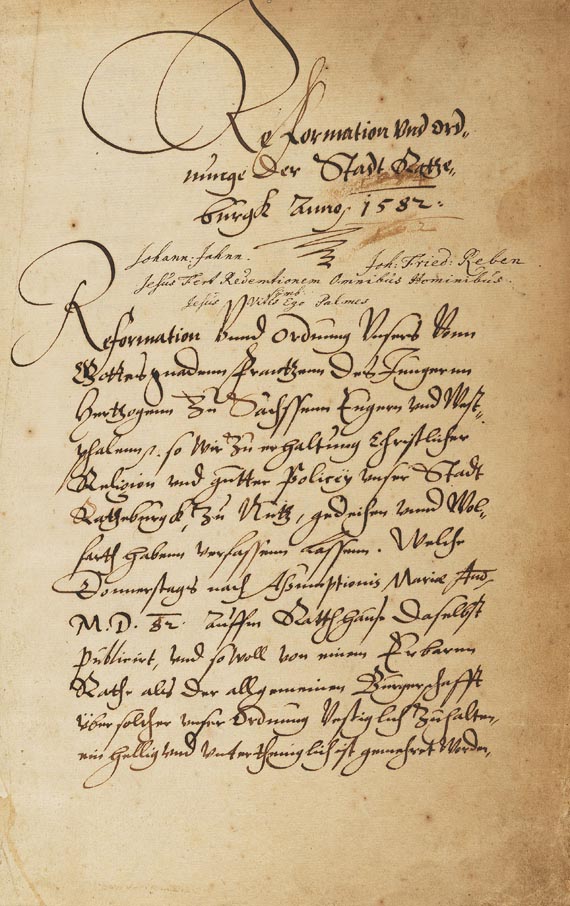 Reformation Vnd Ord„
nunge Der Stadt Ratze„
burgk Anno 1582.
Johann: Jahnn. Joh: Fried: Reben
Jesus Fert Redemtionem Omnibus Hominibus.
Jesus Vitis Ego Palmes
Reformation Vnnd Ordnung Vnsers Vonn
Gottes gnadenn Frantzenn des Jüngernn
Hertzogenn Zu Sachssenn Engern vnd West„
phalenn. so wir zu erhaltung Christlicher
Religion vnd gutter Policÿ vnser Stadt
Ratzeburgk, zu Nutz, gedeihen vnnd Wol„
farth habenn verfassenn lassenn. Welche
Donnerstags nach Assumptionis Mariæ
M.D. 82. auffm Rathhause daselbst
Publicirt, vnd so woll von einem Erbarnn
Rathe als der allgemeinen Bürgerschafft
über solcher vnser Ordnung Vestiglich Zuhalten,
ein hellig vnd Vntertheniglich ist Worden,